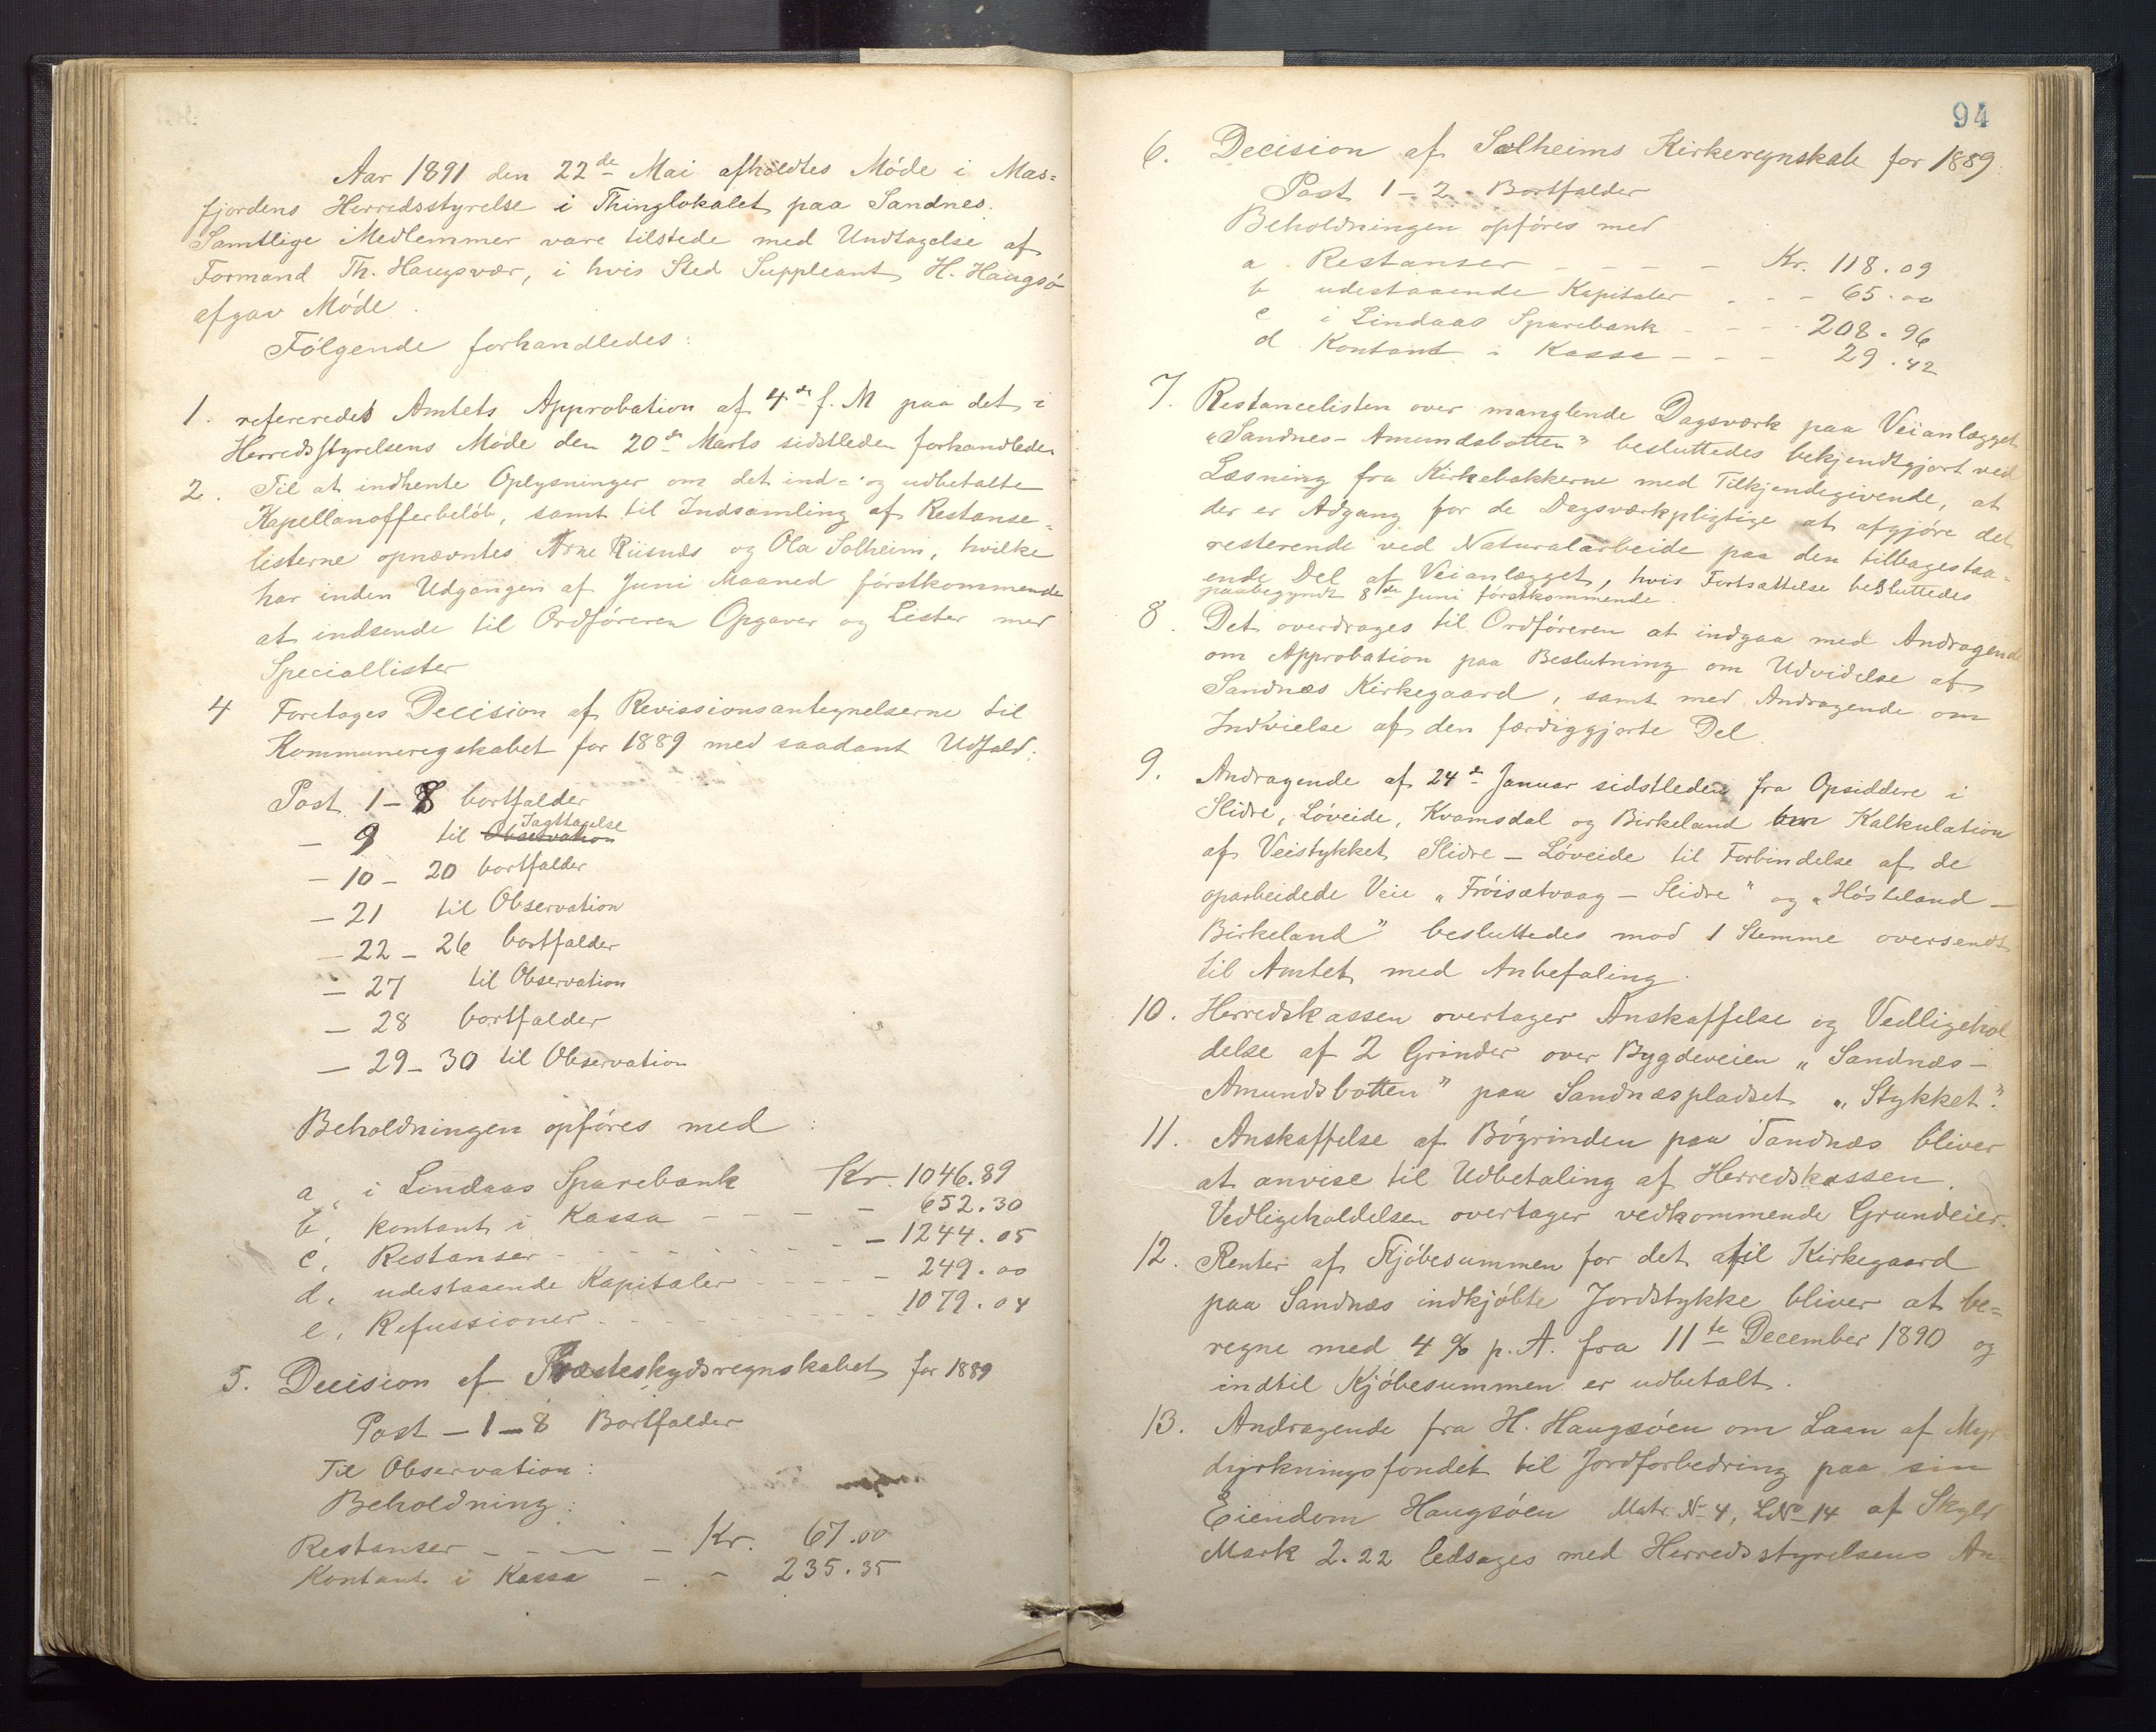 Aar 1891 den 22de Mai afholdtes Møde i Mas=
fjordens Herredsstyrelse i Thinglokalet paa Sandnes.
Samtlige Medlemmer vare tilstede med Undtagelse af
Formand Th. Haugsvær, i hvis Sted Suppleant H. Haugsø
afgav Møde.
Følgende forhandledes:
1. refereredes Amtets Approbation af 4de f. M paa det i
Herredsstyrelsens Møde den 20de Marts sidstleden forhandlede.
2. Til at indhente Oplysninger om det ind= og udbetalte
Kapellanofferbeløb, samt til Indsamling af Restanse=
listerne opnævntes Arne Riisnes og Ola Solheim, hvilke
har inden Udgangen af Juni Maaned førstkommende
at indsende til Ordføreren Opgaver og Lister med
Speciallister
4 Foretages Decision af Revissionsantegnelserne til
Kommuneregskabet for 1889 med saadant Udfald:
Post 1-8 bortfalder
— 9 til Observation Iagttagelse
— 10 - 20 bortfalder
— 21 til Observation
— 22 - 26 bortfalder
— 27 til Observation
— 28 bortfalder
— 29 - 30 til Observation
Beholdningen opføres med:
a, i Lindaas Sparebank Kr. 1046.89
b, kontant i Kassa - - - - 652.30
c, Restanser - - - - - - - 1244.05
d, udestaaende Kapitaler - - - - 249.00
e, Refussioner - - - - - - 1079.04
5. Decision af Præsteskydsregnskabet for 1889
Post - 1 - 8 Bortfalder
Til Observation:
Beholdning:
Restanser - - - - Kr. 67.00
Kontant i Kassa - - - 235.35
94
6. Decision af Solheims Kirkeregnskab for 1889
Post 1-2 - Bortfalder
Beholdningen opføres med
a. Restanser - - - - Kr. 118.09
b udestaaende Kapitaler - - - 65.00
c i Lindaas Sparebank - - - 208.96
d Kontant i Kassa - - - 29.42
7. Restancelisten over manglende Dagsværk paa Veianlægget
"Sandnes-Amundsbotten" besluttedes bekjendtgjort ved
Læsning fra Kirkebakkerne med Tilkjendegivende, at
der er Adgang for de Dagsværkpligtige at afgjøre det
resterende ved Naturalarbeide paa den tilbagestaa=
ende Del af Veianlægget, hvis Fortsættelse besluttedes
paabegyndt 8de Juni førstkommende.
8. Det overdrages til Ordføreren at indgaa med Andragende
om Approbation paa Beslutning om Udvidelse af
Sandnæs Kirkegaard, samt med Andragende om
Indvielse af den færdiggjorte Del.
9. Andragende af 24de Januar sidstleden fra Opsiddere i
Slidre, Løveide, Kvamsdal og Birkeland om Kalkulation
af Veistykket Slidre - Løveide til Forbindelse af de
oparbeidede Veie "Frøisætvaag - Slidre" og "Høsteland -
Birkeland" besluttedes mod 1 Stemme oversendt
til Amtet med Anbefaling.
10. Herredskassen overtager Anskaffelse og Vedligehol
delse af 2 Grinder over Bygdeveien "Sandnæs -
Amundsbotten" paa Sandnæspladset "Stykket".
11. Anskaffelse af Bøgrinden paa Sandnæs bliver
at anvise til Udbetaling af Herredskassen.
Vedligeholdelsen overtager vedkommende Grundeier.
12. Renter af Kjøbesummen for det til Kirkegaard
paa Sandnæs indkjøbte Jordstykke bliver at be=
regne med 4 % p. A. fra 11te December 1890 og
indtil Kjøbesummen er udbetalt.
13. Andragende fra H. Haugsøen om Laan af Myr
dyrkningsfondet til Jordforbedring paa sin
Eiendom Haugsøen Matr. No 4, LNo 14 af Skyld
Mark 2.22 ledsages med Herredsstyrelsens An=